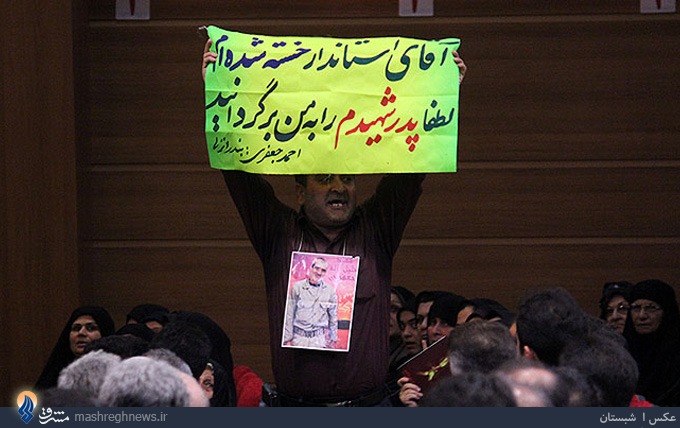 آقای استاندار خسته شده ام
لطفا پدر شهیدم را به من برگردانید
احمد جعفری: بندرانزلی
مشرق
mashreghnews.ir
عکس | شبستان